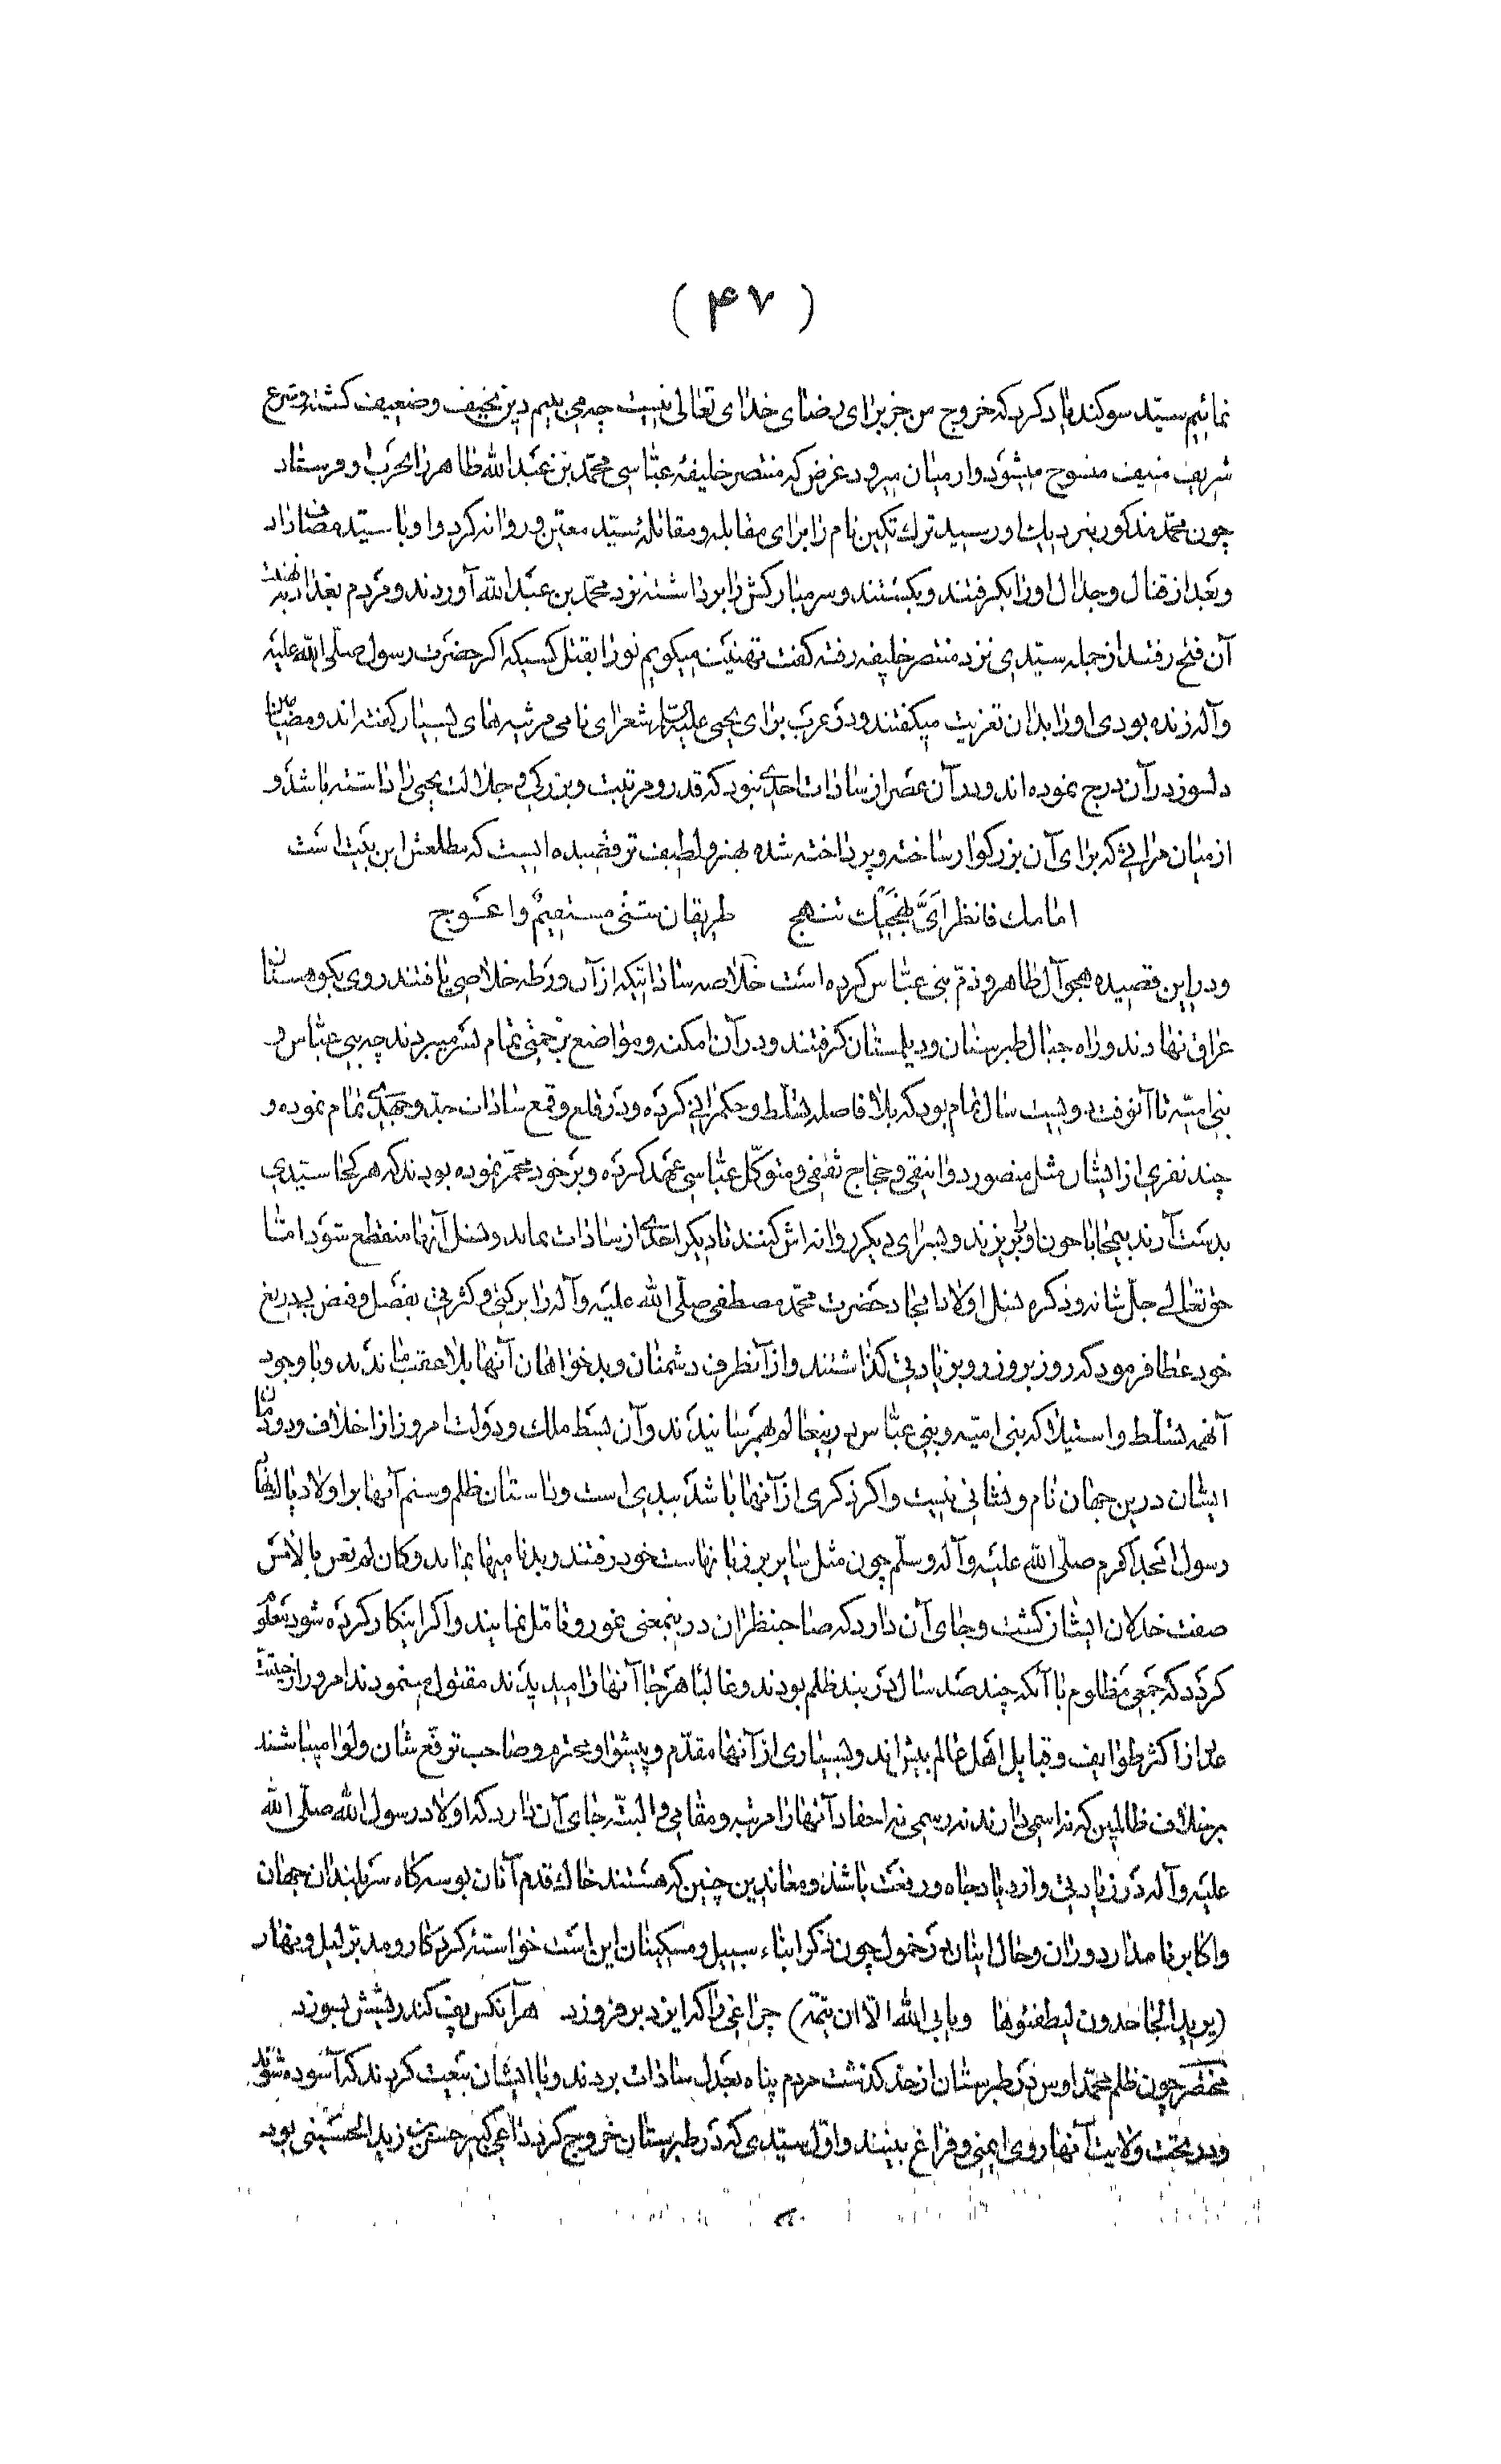 ( ۴۷ )
نمائیم سیّد سوکند یاد کرد که خروج من جز برای رضای خدای تعالی نیست چه می بینم دین نحیف و ضعیف کشته و شرع
شریف منیف منسوخ میشود و از میان میرود غرض که منتصر خلیفهٔ عباسی محمّد بن عبد الله طاهر را بحرب او فرستاد
چون محمّد مذکور بنزدیک او رسید ترك تکین نام را برای مقابله و مقاتلهٔ سیّد معین و روانه کرد و او با سیّد مصاف داد
و بعد از قتال و جدال او را بکرفتند و بکشتند و سر مبارکش را برداشته نزد محمّد بن عبد الله آوردند و مردم بغداد بتهنیت
آن فتح رفتند از جمله سیّدی نزد منتصر خلیفه رفته کفت تهنیت میکویم تو را بقتل کسیکه اکر حضرت رسول صلّی الله علیه
و آله زنده بودی او را بدان تعزیت میکفتند و در عرب برای یحیی علیه السّلام شعرای نامی مرثیه های بسیار کفته اند و مضامین
دلسوز در آن درج نموده اند و در آن عصر از سادات احدی نبود که قدر و مرتبت و بزرکی و جلالت یحیی را داشته باشد و
از میان مراثی که برای آن بزرکوار ساخته و پرداخته شده بهتر و لطیف تر قصیده ایست که مطلعش این بیت است
امامك فانظر ایّ نهجیك تنهج طریقان شتّی مستقیمٌ و اعوج
و در این قصیده هجو آل طاهر و ذمّ بنی عبّاس کرده است خلاصه ساداتیکه از آن ورطه خلاصی یافتند روی بکوهستان
عراق نهادند و راه جبال طبرستان و دیلمستان کرفتند و در آن امکنه و مواضع بزحمتی تمام بسر میبردند چه بنی عبّاس و
بنی امیّه تا آنوقت دویست سال تمام بود که بلا فاصله تسلّط و حکمرانی کرده و در قلع و قمع سادات جدّ و جهدی تمام نموده و
چند نفری از ایشان مثل منصور دوانیقی و حجاج ثقفی و متوکّل عبّاسی عهد کرده و بر خود مخمّر نموده بودند که هر کجا سیّدی
بدست آرند بیمحابا خون او بریزند و بسرای دیکر روانه اش کنند تا دیکر احدی از سادات نماند و نسل آنها منقطع شود امّا
حق تعالی جلّ شانه و ذکره نسل اولاد امجاد حضرت محمّد مصطفی صلّی الله علیه و آله را برکتی و کثرتی بفضل و فیض بیدریغ
خود عطا فرمود که روز بروز رو بزیادتی کذاشتند و از آنطرف دشمنان و بدخواهان آنها بلا عقب ماندند و با وجود
آنهمه تسلّط و استیلا که بنی امیّه و بنی عبّاس در اینعالم بهم رسانیدند و آن بسط ملك و دولت امروز از اخلاف و دودمان
ایشان درین جهان نام و نشانی نیست و اکر ذکری از آنها باشد ببدی است و داستان ظلم و ستم آنها بر اولاد
رسول امجد اکرم صلّی الله علیه و آله و سلّم چون مثل سایر بر زبانهاست خود رفتند و بدنامیها بماند و کان لم تغن بالامس
صفت خذلان ایشان کشت و جای آن دارد که صاحبنظران درینمعنی غور و تامّل نمایند و اکر اینکار کرده شود معلوم
کردد که جمعی مظلوم با آنکه چند صد سال در بند ظلم بودند و غالبًا هر جا آنها را میدیدند مقتول مینمودند امروز از حیثیت
عدد از اکثر طوایف و قبایل اهل عالم بیشراند و بسیاری از آنها مقدّم و پیشوا و محترم و صاحب توقّع شان ولوا میباشند
بر خلاف ظالمین که نه اسمی دارند نه رسمی نه احفاد آنها را مرتبه و مقامی و البتّه جای آن دارد که اولاد رسول الله صلّی الله
علیه و آله در زیادتی و ازدیاد جاه و رفعت باشند و معاندین چنین که هستند خاك قدم آنان بوسه کاه سربلندان جهان
و اکابر نامدار دوران و حال اینان در خمول چون ذکر ابناء سبیل و مسکینان این است خواستهٔ کردکار و مدبّر لیل و نهار
(یرید الجاحدون لیطفئوها و یابی الله الّا ان یتمّه) چراغی را که ایزد بر فروزد هر آنکس پف کند ریشش بسوزد
مختصر چون ظلم محمّد اوس در طبرستان از حدّ کذشت مردم پناه بعدل سادات بردند و با ایشان بیعت کردند که آسوده شوند
و در تحت ولایت آنها روی ایمنی و فراغ بینند و اوّل سیّدی که در طبرستان خروج کرد داعی کبیر حسن بن زید الحسینی بود